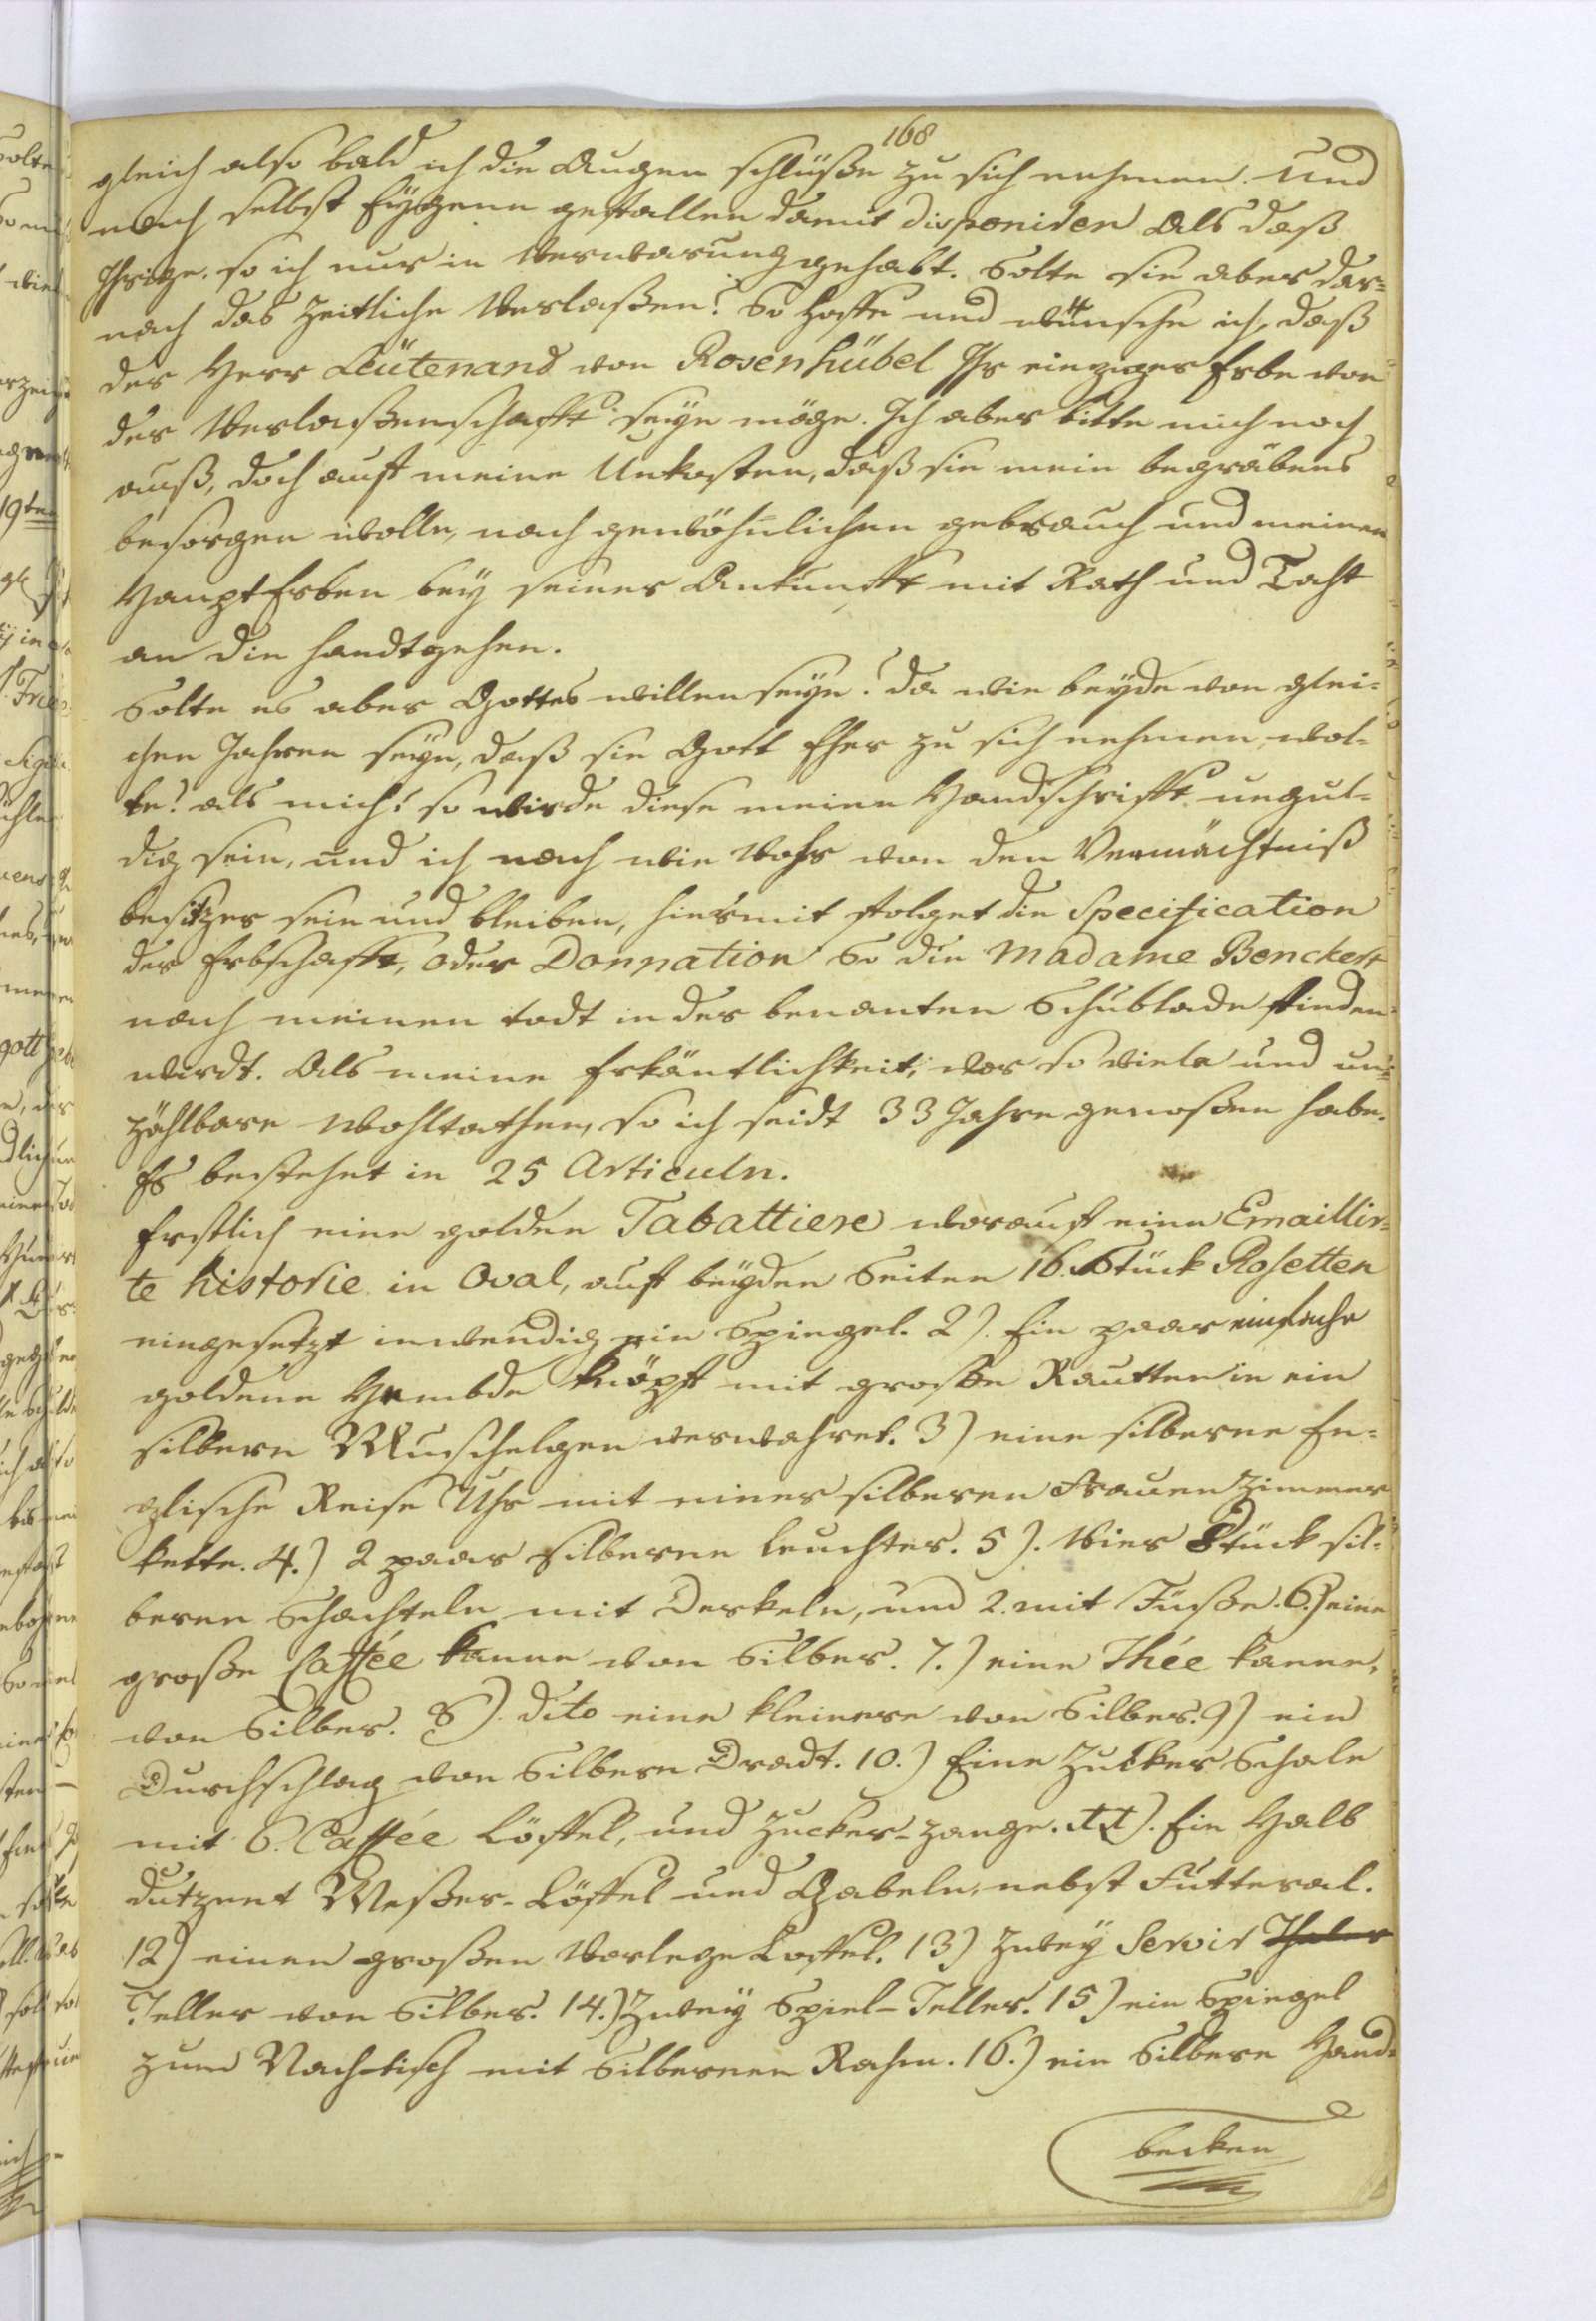 168
gleich also bald ich die Augen schlüße zu sich nehmen. Und
nach selbst Eÿgenen gefallen damit disponiren Als daß
Ihrige. so ich nur in Verwarung gehabt. Solte sie aber dar-
nach das Zeitliche Verlaßen? So hoffe und wünsche ich, daß
der Herr Leütenand von Rosenhübel Ihr einziger Erbe von
der Verlaßenschafft seÿn möge. Ich aber bitte mich noch
auß, doch auf meine Unkosten, daß sie mein begräbens
besorgen wolle, nach gewöhnlichen gebrauch und meinen
Haupt Erben beÿ seiner Ankunfft mit Rath und Taht
an die handt gehen.
Solte es aber Gottes willen seÿn? Da wie beÿde von glei-
chen Jahren seÿn, daß sie Gott Eher zu sich nehmen wol-
te? als mich? so wirde diese meine Handschrifft ungul-
dig sein, und ich nach wie Vohr von den Vermächtniß
besitzer sein und bleiben, hiermit folget die Specification
der Erbschafft, oder Donnation So die Madame Benckert
nach meinen todt in der benanten Schublade finden
wirdt. Als meine Erkäntlichkeit, vor so viele und un-
zählbare Wohltathen, so ich seidt 33 Jahre genoßen habe.
Es bestehet in 25 Articuln.
Erstlich eine golden Tabattiere worauf eine Emaillir-
te historie in Oval, auf beÿden Seiten 16. Stück Rosetten
eingesetzt inwendig ein Spiegel. 2). Ein paar einfache
goldene Hembde Knöpf mit große Rautten in ein
silbern Muschelgen verwahret. 3) eine silberne En-
glische Reise Uhr mit einer silberen Frauen Zimmer
kette. 4.) 2 paar silberne leuchter. 5). Vier Stück sil-
berne Schachteln mit Deckeln, und 2. mit Füße. 6.) eine
große Caffée kanne von Silber. 7.) eine Thée kanne,
von Silber. 8). dito eine kleinere von Silber. 9) ein
Durchschlag von Silbern Dradt. 10.) Eine Zucker Schale
mit 6. Caffée Löffel, und Zucker-zange. 11). Ein Halb
dutzent Meßer-Löffel und Gabeln, nebst Futteral.
12) einen großen Vorlege Löffel. 13) Zweÿ Servir Thaler
Teller von Silber. 14.) Zweÿ Spiel-Teller. 15) ein Spiegel
zum Nachtisch mit Silbernen Rahm. 16.) ein Silbern Hand-
becken